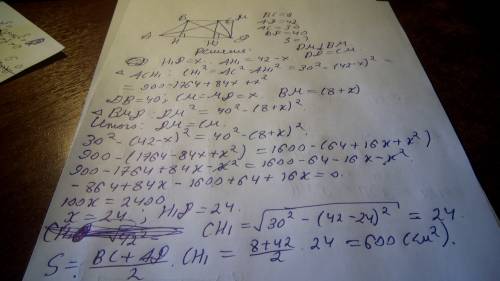 B C M
A H H1 D
BC=8
AD=42
AC=30
BD=40
S=?
Решение:
DM⊥BM
H1D=x. AH1=42-x
△ACH1: CH1²=AC²-AH1²=30²-(42-x)²=
=900-1764+84x+x²
DB=40; CM=H1D=x. BM=(8+x)
△BMD: DM²=40²-(8+x)².
Итого:
30²-(42-x)²=40²-(8+x)².
900-(1764-84x+x²)=1600-(64+16x+x²)
900-1764+84x-x²=1600-64-16x-x²
-864+84x-1600+64+16x=0.
100x=2400
x=24; H1D=24.
CH1=√30²-(42-24)²=24.
S=BC+AD/2·CH1=8+42/2·24=600(см²).